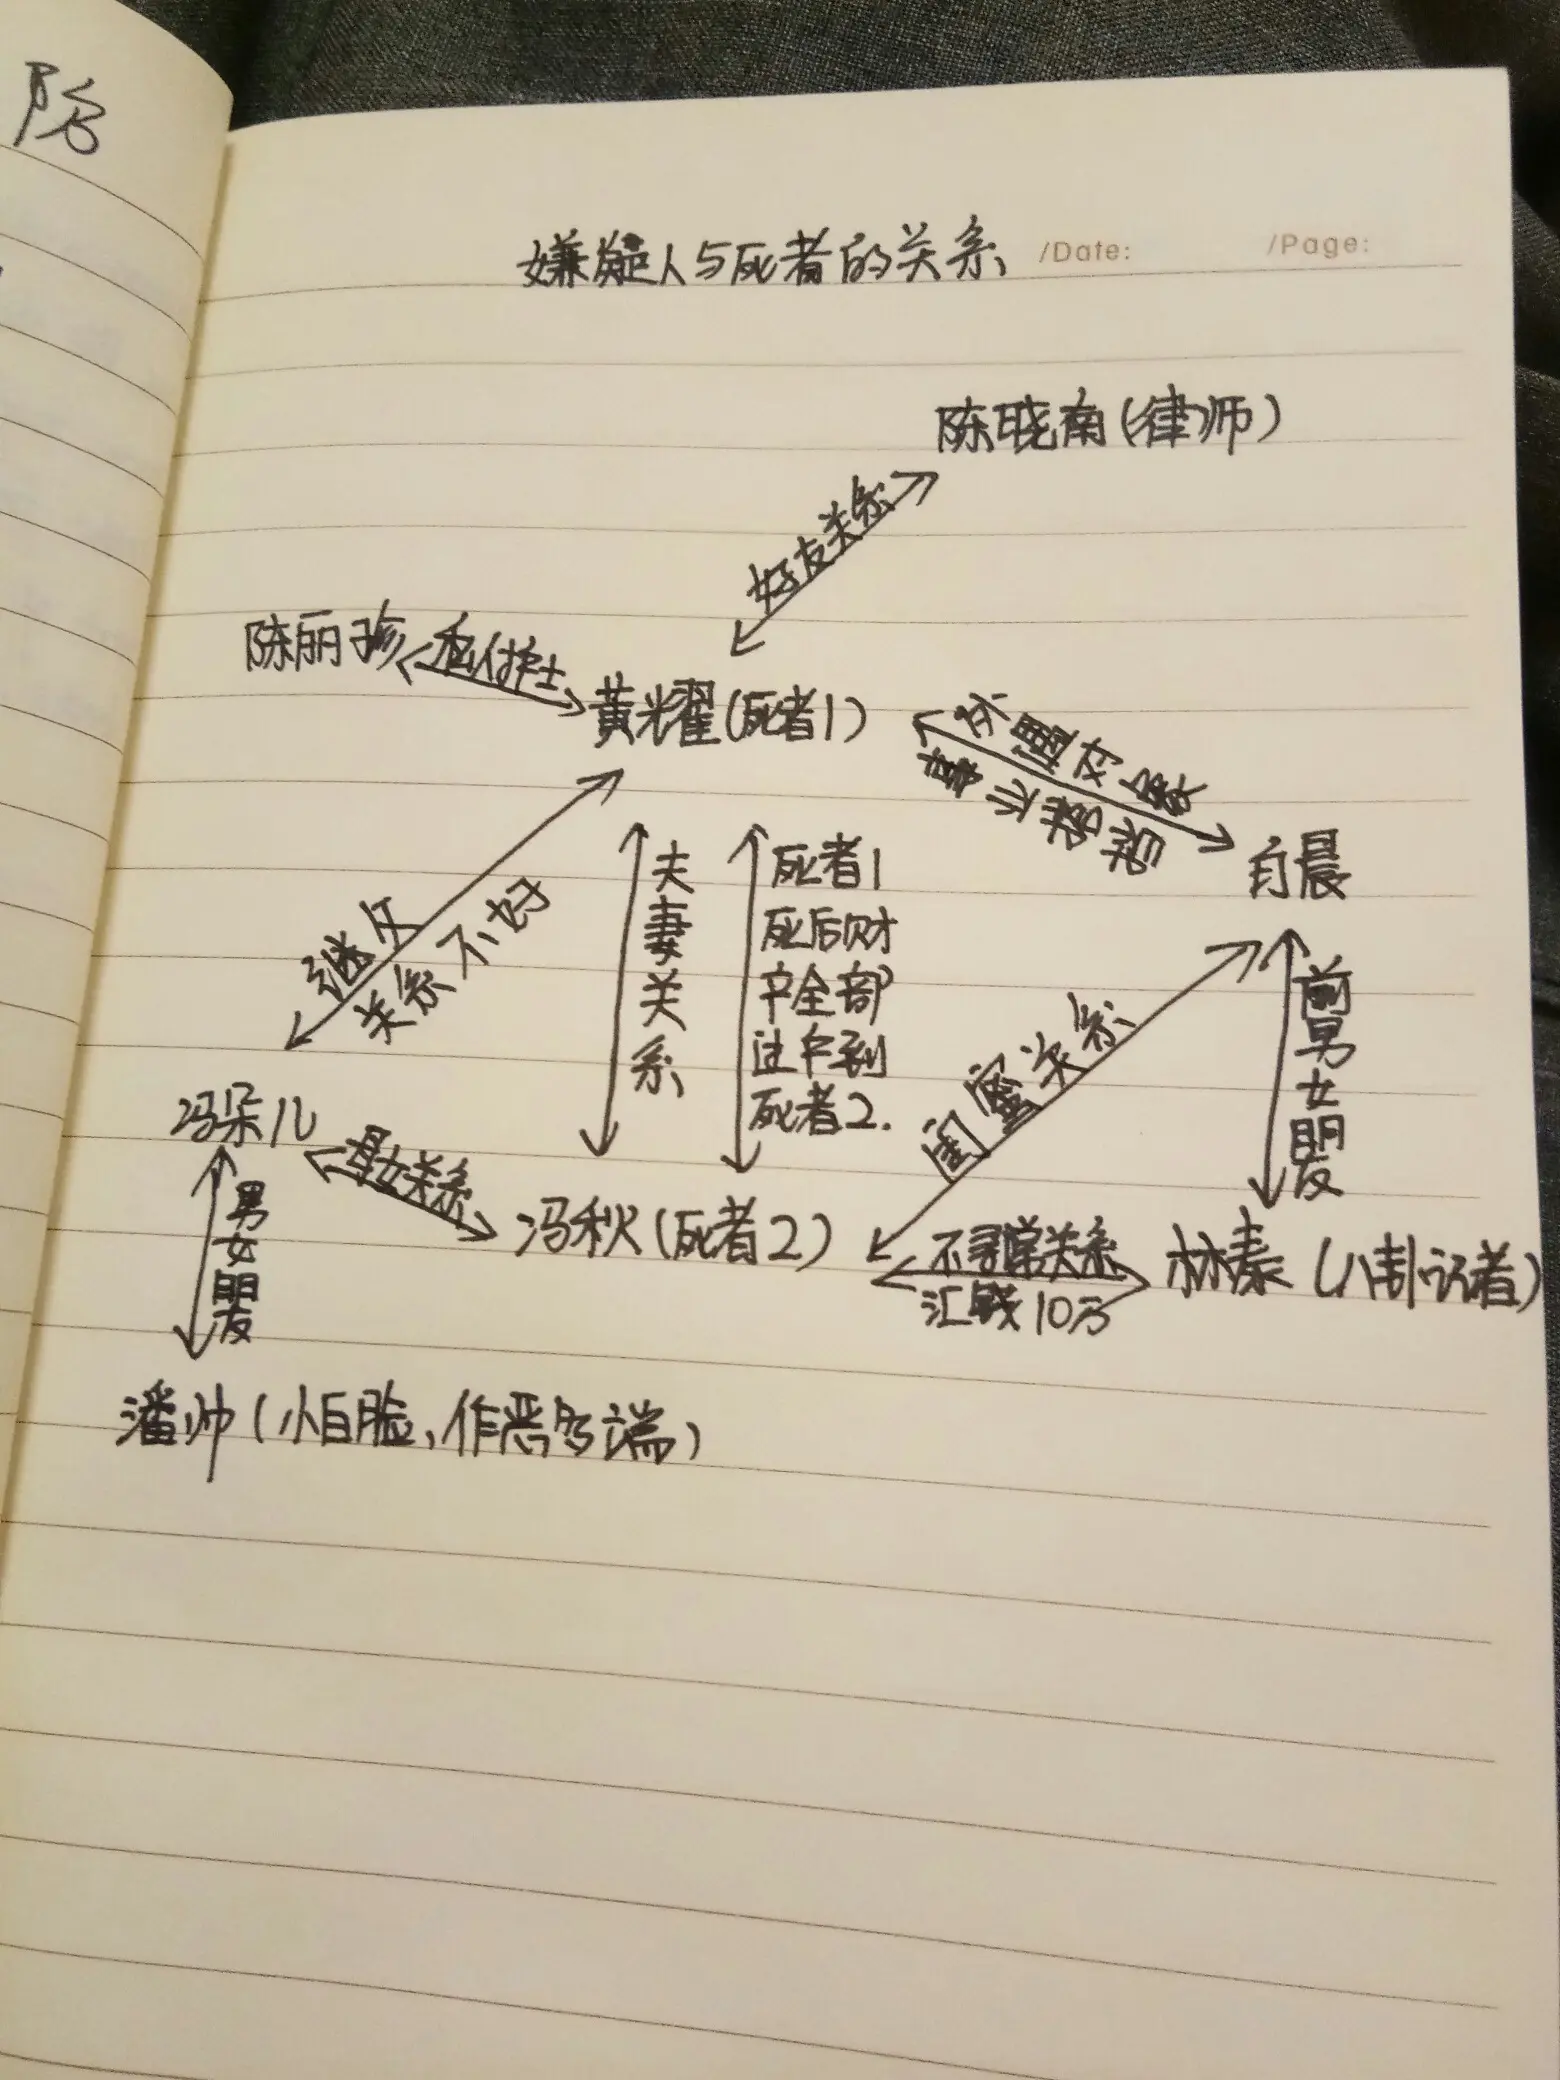 嫌疑人与死者的关系 /Date: /Page:
陈晓南(律师)
好友关系
陈丽珍
私人护士
黄耀(死者1)
外遇对象
事业帮忙
白晨
继父
关系不好
夫妻关系
死者1
死后财
产全部
过户到
死者2.
闺蜜关系
前男女朋友
冯朵儿
母女关系
冯秋(死者2)
不寻常关系
汇钱10万
林泰(八卦记者)
男女朋友
潘帅(小白脸、作恶多端)